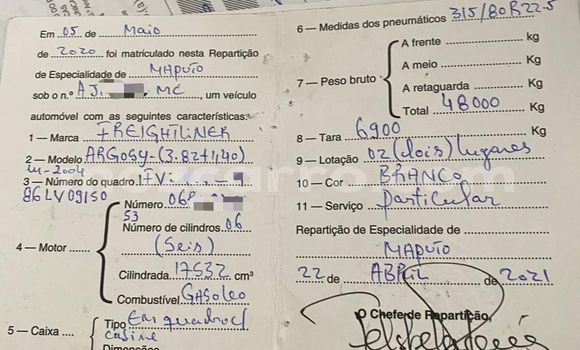 Em 05 de Maio
de 2020 foi matriculado nesta Repartição
de Especialidade de MAPUTO
sob o n.º AJ. MC, um veículo
automóvel com as seguintes características:
1 — Marca FREIGHTLINER
2 — Modelo ARGOSY-(3.82+1,40)
M-2004
3 — Número do quadro 1FV 9
86LV09150
4 — Motor
Número 06R
53
Número de cilindros 06
(Seis)
Cilindrada 17532 cm³
Combustível GASOLEO
5 — Caixa
Tipo Em quadro c/
cabine
Dimensões
6 — Medidas dos pneumáticos 315/80R22.5
7 — Peso bruto
A frente Kg
A meio Kg
A retaguarda Kg
Total 48000 Kg
8 — Tara 6900 Kg
9 — Lotação 02 (dois) lugares
10 — Cor BRANCO
11 — Serviço Particular
Repartição de Especialidade de
MAPUTO
22 de ABRIL de 2021
O Chefe de Repartição,